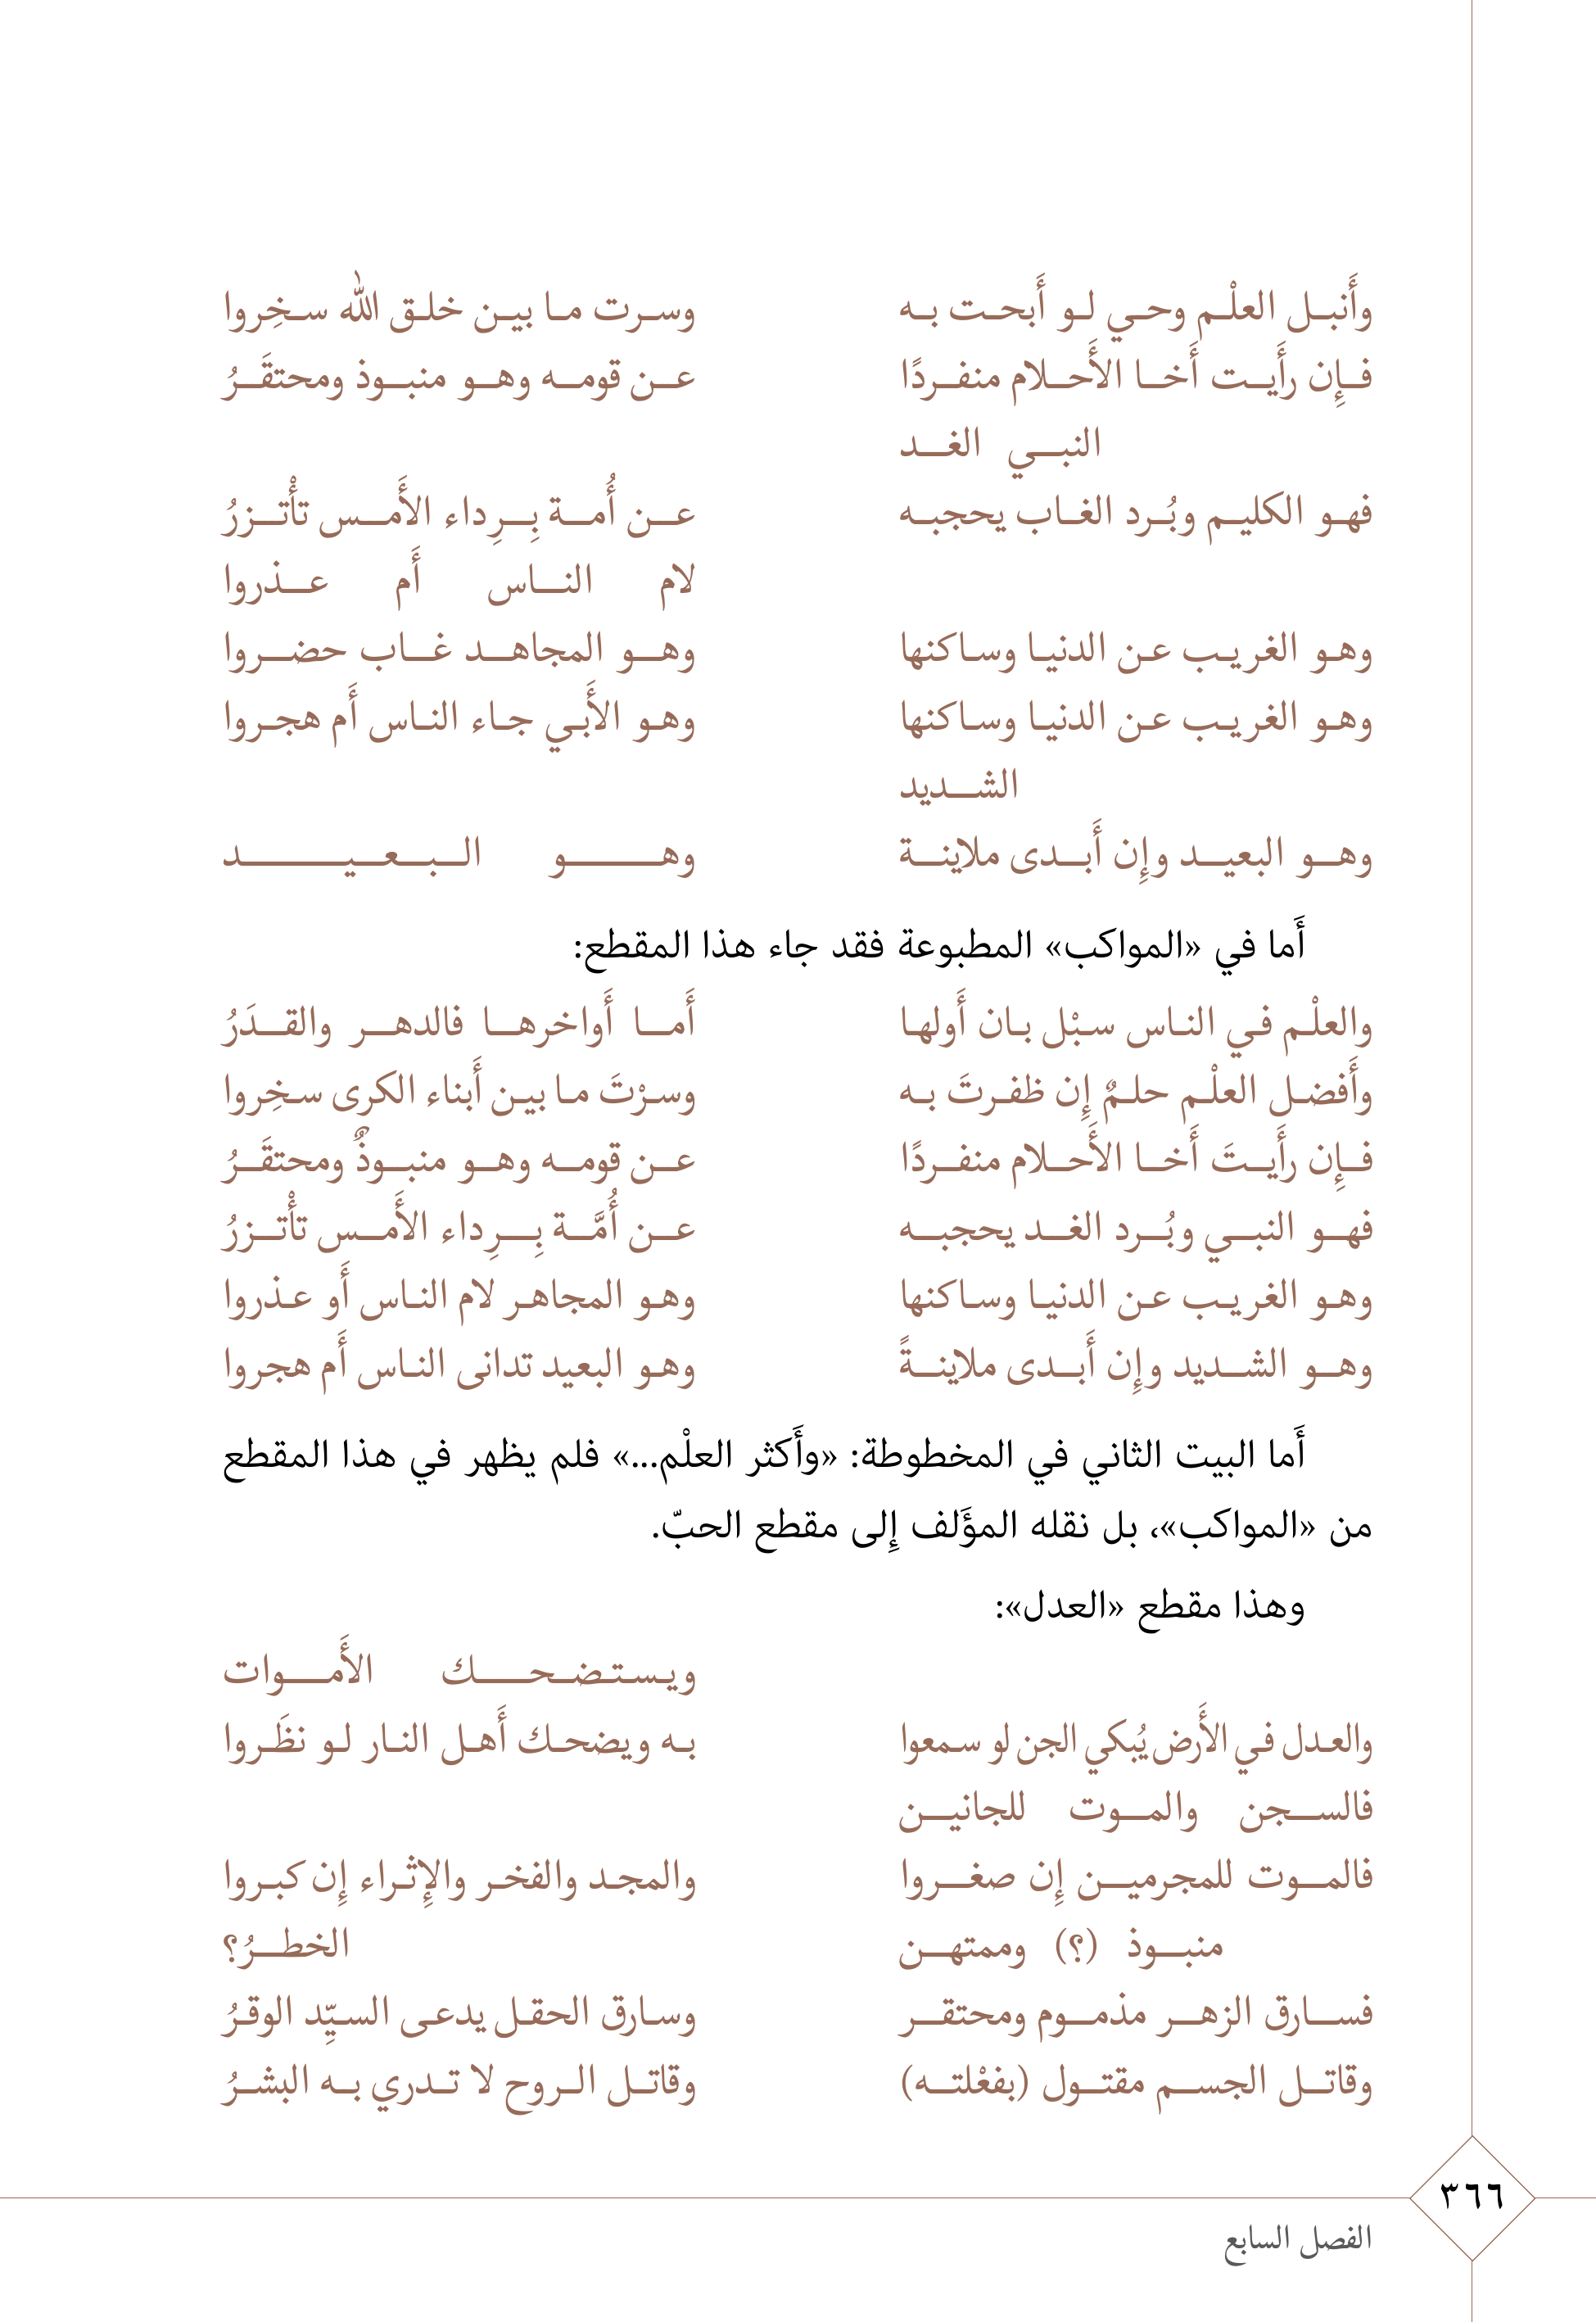 وأَنبل العلْم وحي لو أَبحت به وسرت ما بين خلق الله سخِروا
فإِن رأَيت أَخا الأَحلام منفردًا عن قومه وهو منبوذ ومحتقَرُ
النبي الغد
فهو الكليم وبُرد الغاب يحجبه عن أُمة بِرِداء الأَمس تأْتزرُ
لام الناس أَم عذروا
وهو الغريب عن الدنيا وساكنها وهو المجاهد غاب حضروا
وهو الغريب عن الدنيا وساكنها وهو الأَبي جاء الناس أَم هجروا
الشديد
وهو البعيد وإِن أَبدى ملاينة وهو البعيد
أَما في «المواكب» المطبوعة فقد جاء هذا المقطع:
والعلْم في الناس سبْل بان أَولها أَما أَواخرها فالدهر والقدَرُ
وأَفضل العلْم حلمٌ إِن ظفرتَ به وسرْتَ ما بين أَبناء الكرى سخِروا
فإِن رأَيتَ أَخا الأَحلام منفردًا عن قومه وهو منبوذٌ ومحتقَرُ
فهو النبي وبُرد الغد يحجبه عن أُمَّة بِرِداء الأَمس تأْتزرُ
وهو الغريب عن الدنيا وساكنها وهو المجاهر لام الناس أَو عذروا
وهو الشديد وإِن أَبدى ملاينةً وهو البعيد تدانى الناس أَم هجروا
أَما البيت الثاني في المخطوطة: «وأَكثر العلْم...» فلم يظهر في هذا المقطع
من «المواكب»، بل نقله المؤَلف إِلى مقطع الحبّ.
وهذا مقطع «العدل»:
ويستضحك الأَموات
والعدل في الأَرض يُبكي الجن لو سمعوا به ويضحك أَهل النار لو نظَروا
فالسجن والموت للجانين
فالموت للمجرمين إِن صغروا والمجد والفخر والإِثراء إِن كبروا
منبوذ (؟) وممتهن الخطرُ؟
فسارق الزهر مذموم ومحتقر وسارق الحقل يدعى السيِّد الوقرُ
وقاتل الجسم مقتول (بفعْلته) وقاتل الروح لا تدري به البشرُ
٣٦٦
الفصل السابع